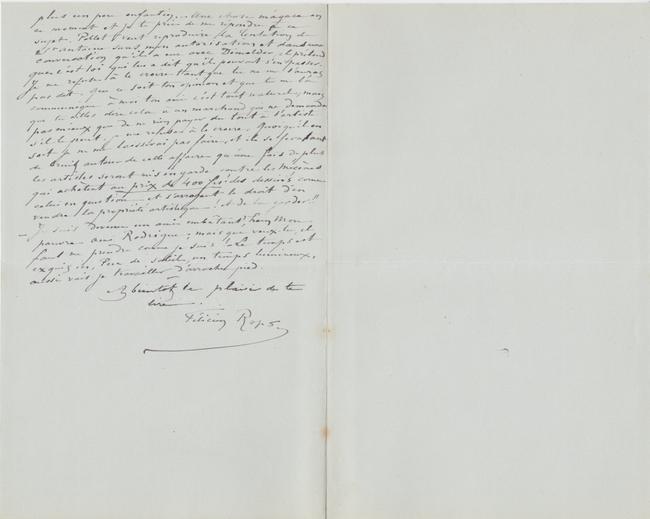 plus un peu enfantin. Une chose m'agace en
ce moment et je te prie de me répondre à ce
sujet. Pellet veut reproduire la Tentation de
St Antoine sans mon autorisation et dans une
conversation qu'il a eue avec Deman, il prétend
que c'est toi qui lui a dit qu'il pouvait s'en passer.
Je me refuse à le croire tant que tu ne me l'auras
pas dit. Que ce soit ton opinion et que tu me la
communiques à moi ton ami c'est tout naturel, mais
que tu ailles dire cela à un marchand qui ne demande
pas mieux que de ne rien payer du tout à l'artiste
s'il le peut, je me refuse à le croire. Quoiqu'il en
soit je ne me laisserai pas faire, et il se fera tant
de bruit autour de cette affaire qu'une fois de plus
les artistes seront mis en garde contre les Mécènes
qui achètent au prix de 400 frs des dessins comme
celui en question et s'arrogent le droit d'en
vendre la propriété artistique ! et de la garder !!
– Je suis devenu un ami embêtant, hein mon
pauvre ami Rodrigue, mais que veux-tu, il
faut me prendre comme je suis ! Le temps est
exquis ici, peu de soleil, un temps lumineux,
aussi vais je travailler d'arrache pied.
A bientôt le plaisir de te
lire.
Félicien Rops